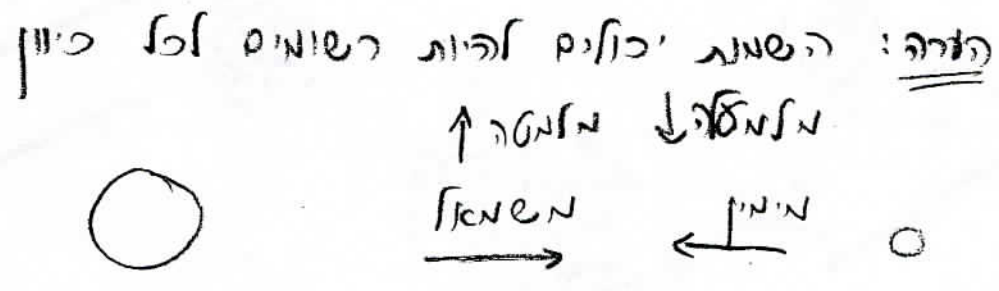 הערה: השמות יכולים להיות רשומים לכל כיוון
מלמעלה ↓ מלמטה ↑
מימין ← משמאל →